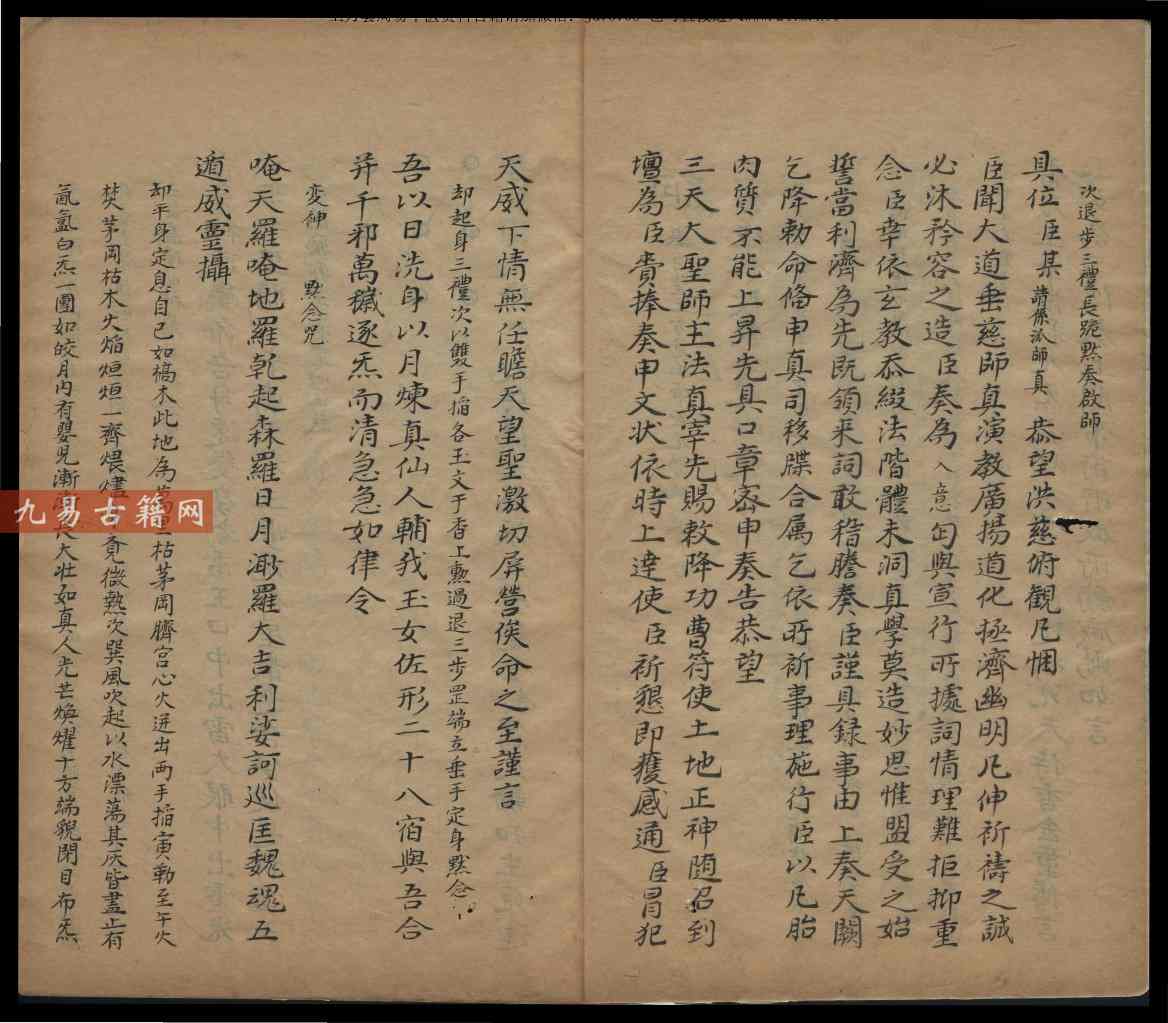 次退步三禮長跪默奏啟師
具位 臣某 請係派師真 恭望洪慈俯觀凡悃
臣聞大道垂慈師真演教廣揚道化拯濟幽明凡伸祈禱之誠
必沐矜容之造 臣奏為 入意 匄與宣行所據詞情理難拒抑重
念 臣幸依玄教忝綴法階體未洞真學莫造妙思惟盟受之始
誓當利濟為先既領来詞敢稽謄奏 臣謹具録事由上奏天闕
乞降勅命俻申真司移牒合属乞依所祈事理施行 臣以凡胎
肉質不能上昇先具口章密申奏告恭望
三天大聖師主法真宰先賜敕降功曹符使土地正神随召到
壇為 臣賫捧奏申文狀依時上達使 臣祈懇即獲感通 臣冒犯
天威下情無任瞻天望聖激切屏營俟命之至謹言
却起身三禮次以雙手搯各玉文于香上勲過退三步罡端立垂手定身黙念
吾以日洗身以月煉真仙人輔我玉女佐形二十八宿與吾合
并千邪萬穢逐炁而清急急如律令
変神 黙念咒
唵天羅唵地羅乾起森羅日月渺羅大吉利娑訶巡匡魏魂五
遁威靈攝
却平身定息自已如槁木此地為萬里枯茅岡臍宫心火迸出两手搯寅動至午火
焚茅岡枯木火焰烜烜一齊煨燼 竟微熱次巽風吹起以水漂蕩其灰皆盡止有
氤氲白炁一團如皎月内有嬰児漸 大壮如真人光芒煥耀十方端貌閉目布炁
九易古籍网